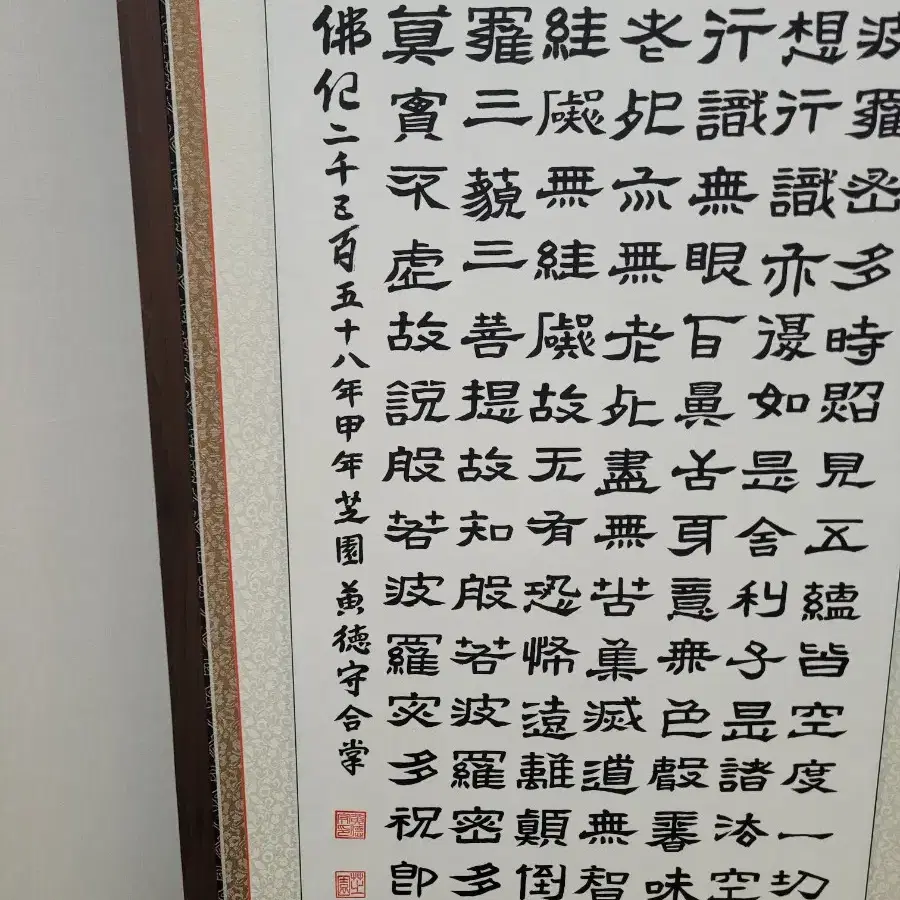 波羅密多時照見五蘊皆空度一切
想行識亦復如是舍利子是諸法空
行識無眼耳鼻舌身意無色聲香味
老死亦無老死盡無苦集滅道無智
絓礙無絓礙故无有恐怖遠離顛倒
羅三藐三菩提故知般若波羅密多
真實不虛故說般若波羅密多祝即
佛紀二千五百五十八年甲年芝園黃德守合掌